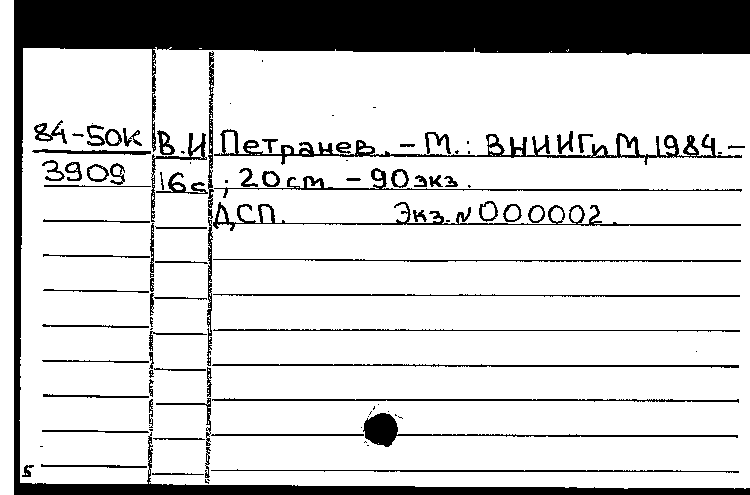 84-50К В.И Петранев. - М.: ВНИИГиМ, 1984.-
3909 16с; 20 см. - 90 экз.
ДСП. Экз. № 000002.
5